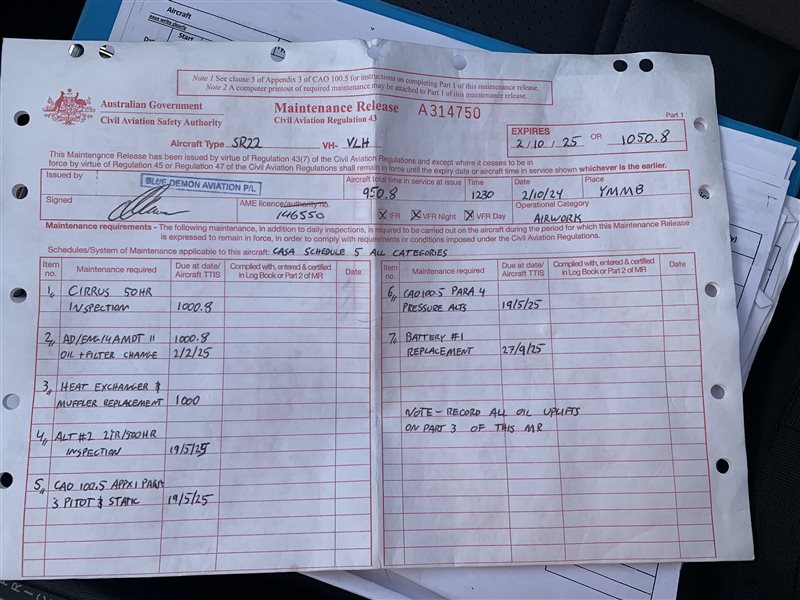 Aircraft
ease write clearly
Start
Note 1 See clause 5 of Appendix 3 of CAO 100.5 for instructions on completing Part 1 of this maintenance release.
Note 2 A computer printout of required maintenance may be attached to Part 1 of this maintenance release.
Australian Government
Civil Aviation Safety Authority
Maintenance Release A314750
Civil Aviation Regulation 43
Part 1
Aircraft Type SR22 VH- VLH
EXPIRES
2/10/25 OR 1050.8
This Maintenance Release has been issued by virtue of Regulation 43(7) of the Civil Aviation Regulations and except where it ceases to be in
force by virtue of Regulation 45 or Regulation 47 of the Civil Aviation Regulations shall remain in force until the expiry date or aircraft time in service shown whichever is the earlier.
Issued by BLUE DEMON AVIATION P/L
Aircraft total time in service at issue 950.8
Time 1230
Date 2/10/24
Place YMMB
Signed
AME licence/authority no. 146550
X IFR X VFR Night X VFR Day
Operational Category AIRWORK
Maintenance requirements - The following maintenance, in addition to daily inspections, is required to be carried out on the aircraft during the period for which this Maintenance Release
is expressed to remain in force, in order to comply with requirements or conditions imposed under the Civil Aviation Regulations.
Schedules/System of Maintenance applicable to this aircraft: CASA SCHEDULE 5 ALL CATEGORIES
Item no. Maintenance required Due at date/ Aircraft TTIS Complied with, entered & certified in Log Book or Part 2 of MR Date
1, CIRRUS 50HR
INSPECTION 1000.8
2, AD/ENG/4 AMDT 11 1000.8
OIL + FILTER CHANGE 2/2/25
3, HEAT EXCHANGER &
MUFFLER REPLACEMENT 1000
4, ALT #2 2YR/500HR
INSPECTION 19/5/25
5, CAO 100.5 APPX 1 PARA
3 PITOT & STATIC 19/5/25
Item no. Maintenance required Due at date/ Aircraft TTIS Complied with, entered & certified in Log Book or Part 2 of MR Date
6, CAO100.5 PARA 4
PRESSURE ALTS 19/5/25
7, BATTERY #1
REPLACEMENT 27/9/25
NOTE - RECORD ALL OIL UPLIFTS
ON PART 3 OF THIS MR